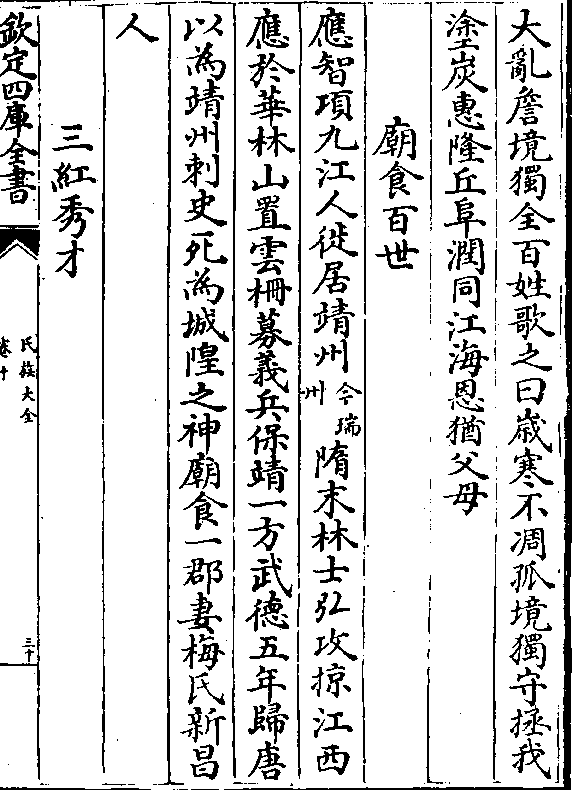 大亂詹境獨全百姓歌之曰歳寒不凋孤境獨守拯我
塗炭惠隆丘阜潤同江海恩猶父母
廟食百世
應智項九江人徙居靖州今瑞州隋末林士弘攻掠江西
應於華林山置雲柵募義兵保靖一方武德五年歸唐
以為靖州刺史死為城隍之神廟食一郡妻梅氏新昌
人
三紅秀才
欽定四庫全書
氏族大全
卷十
三十